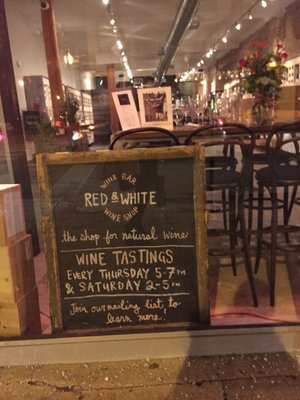 WINE BAR
RED & WHITE
WINE SHOP
the shop for natural wine
WINE TASTINGS
EVERY THURSDAY 5-7pm
& SATURDAY 2-5pm
Join our mailing list to
learn more.